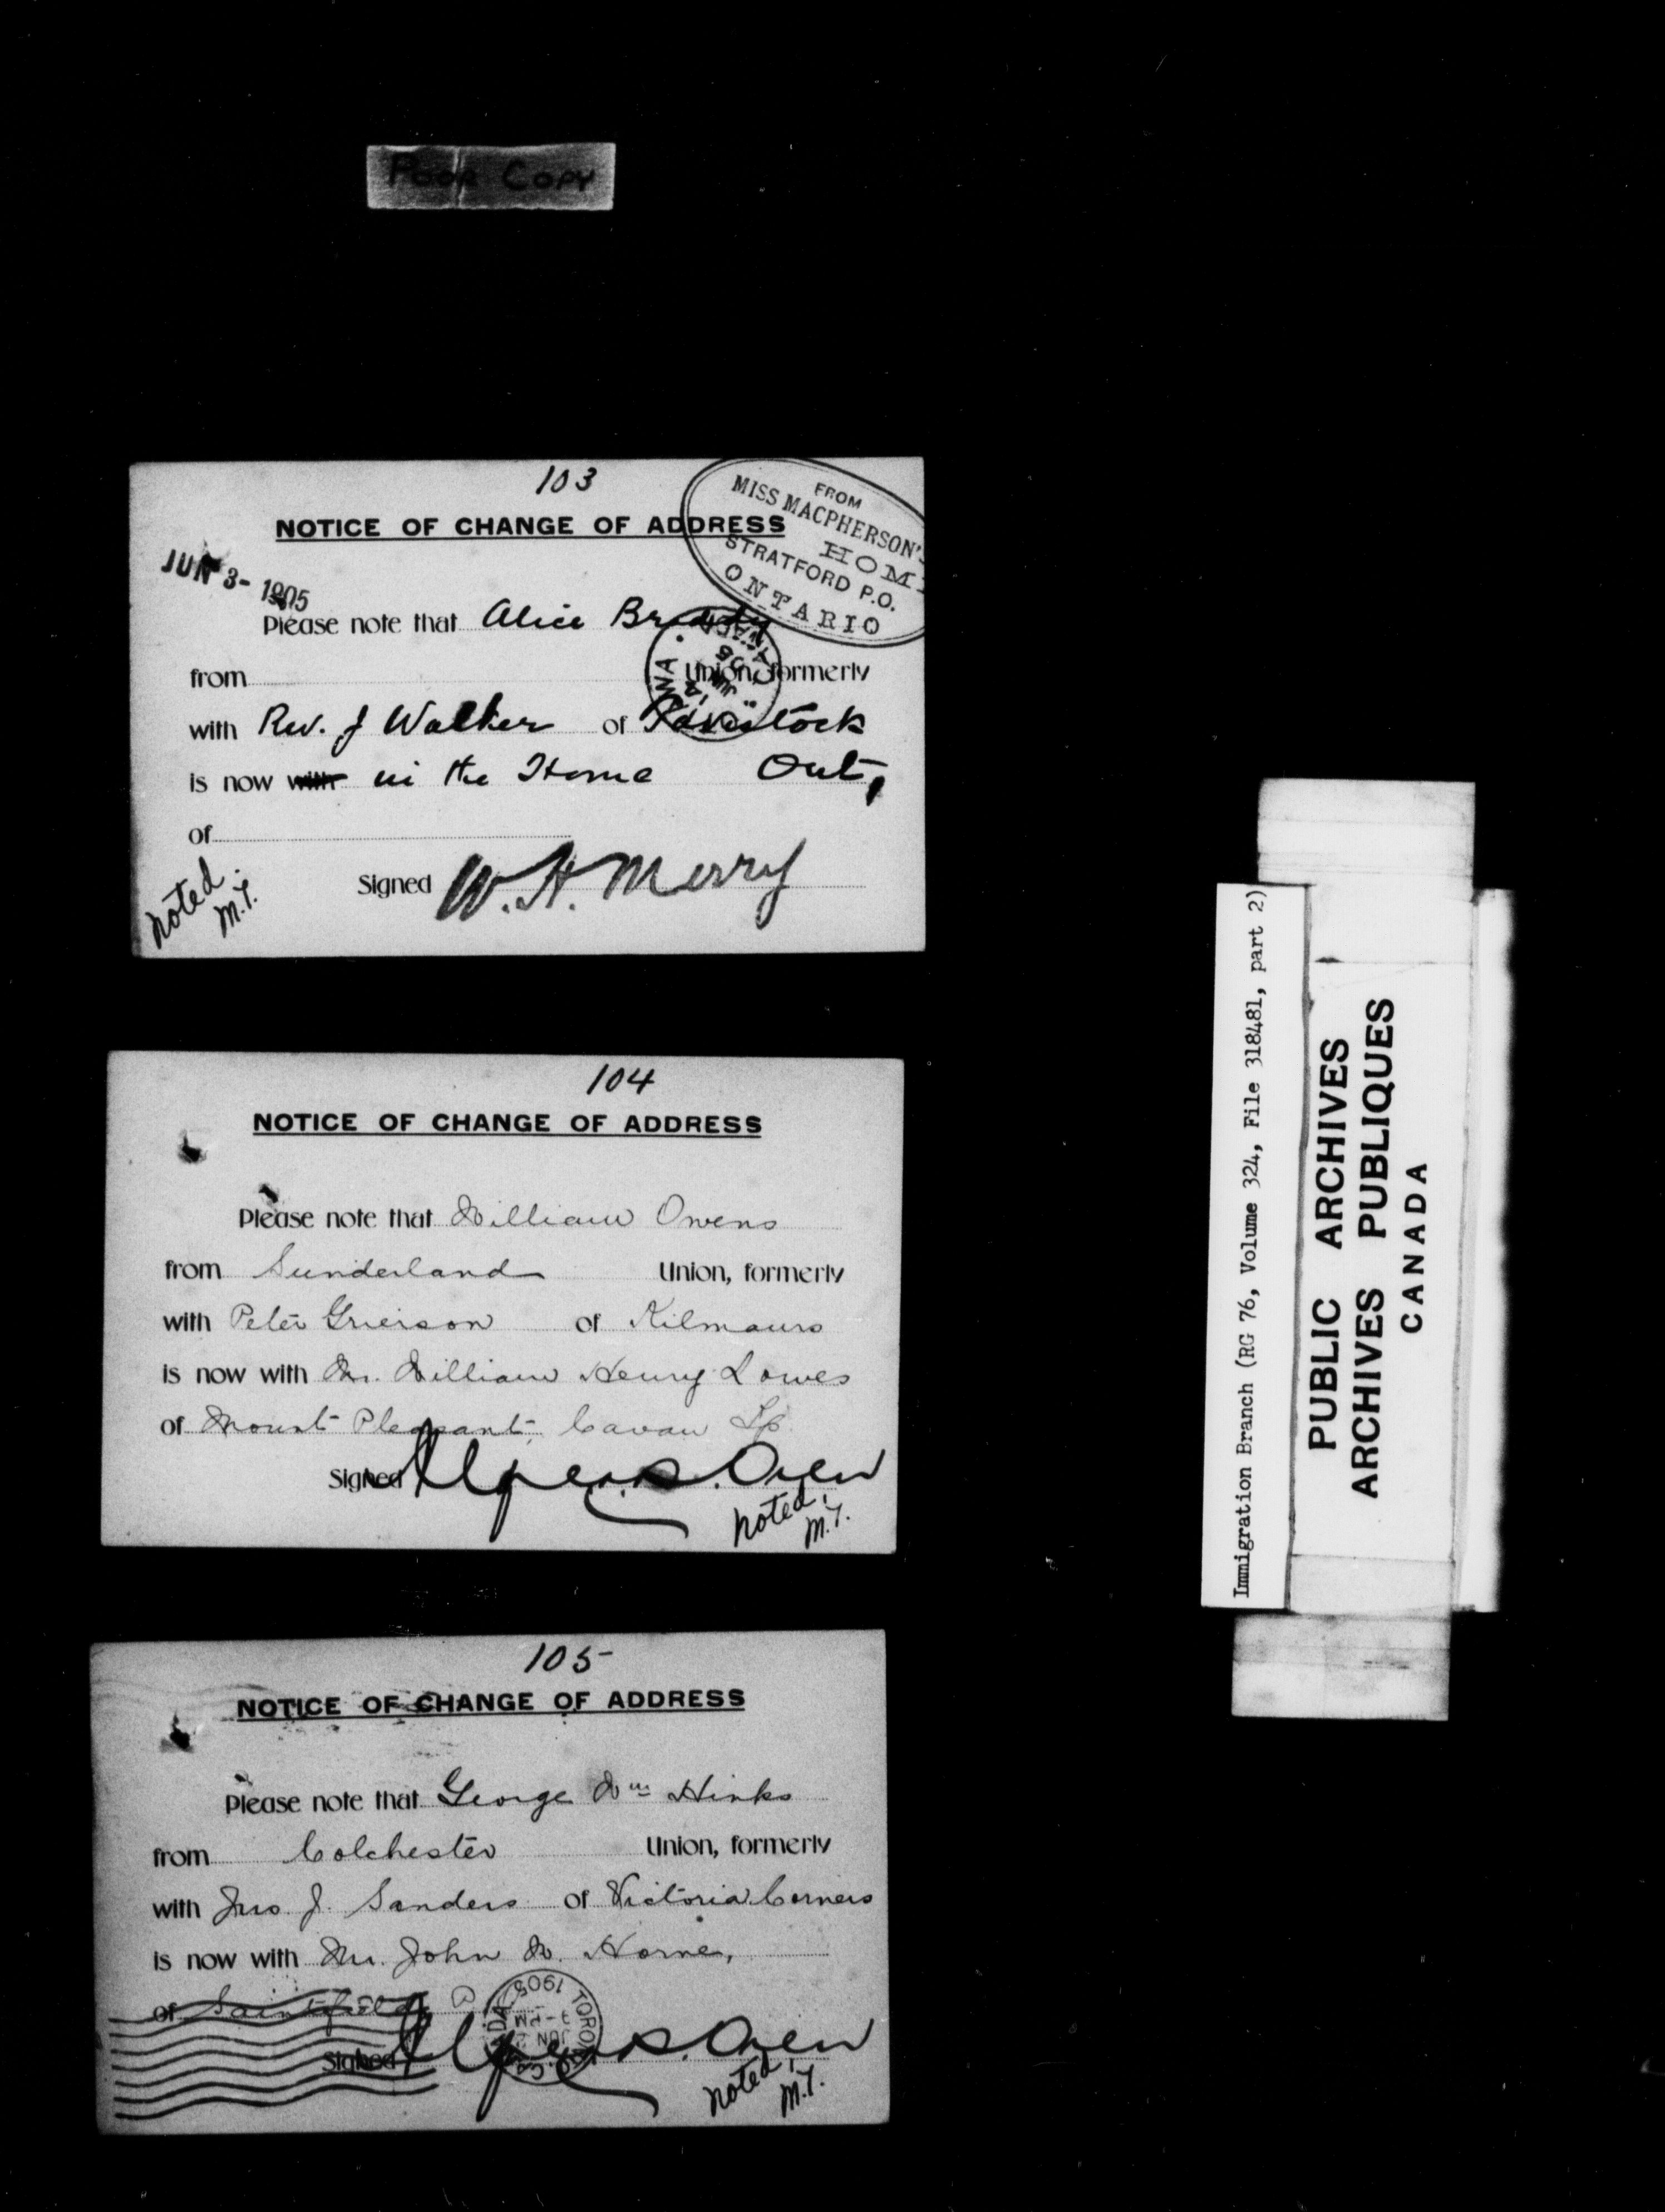 Poor Copy
103
NOTICE OF CHANGE OF ADDRESS
FROM
MISS MACPHERSON'S
HOME
STRATFORD P.O.
ONTARIO
JUN 3- 1905
Please note that Alice Brady
from Union, formerly
with Rev. J Walker of Tavistock
is now with in the Home Ont,
of
Signed W. H. Merry
Noted.
M.Y.
104
NOTICE OF CHANGE OF ADDRESS
Please note that William Owens
from Sunderland Union, formerly
with Peter Grierson of Kilmaurs
is now with Mr. William Henry Lowes
of Mount Pleasant, Cavan Tp.
Signed Owen
Noted,
M.Y.
105
NOTICE OF CHANGE OF ADDRESS
Please note that George Wm Hinks
from Colchester Union, formerly
with Jno. J. Sanders of Victoria Corners
is now with Mr. John W. Horne,
of Saintfield
TORONTO CANADA
JUN
3-PM
1905
Signed Owen
Noted,
M.Y.
Immigration Branch (RG 76, Volume 324, File 318481, part 2)
PUBLIC ARCHIVES
ARCHIVES PUBLIQUES
CANADA